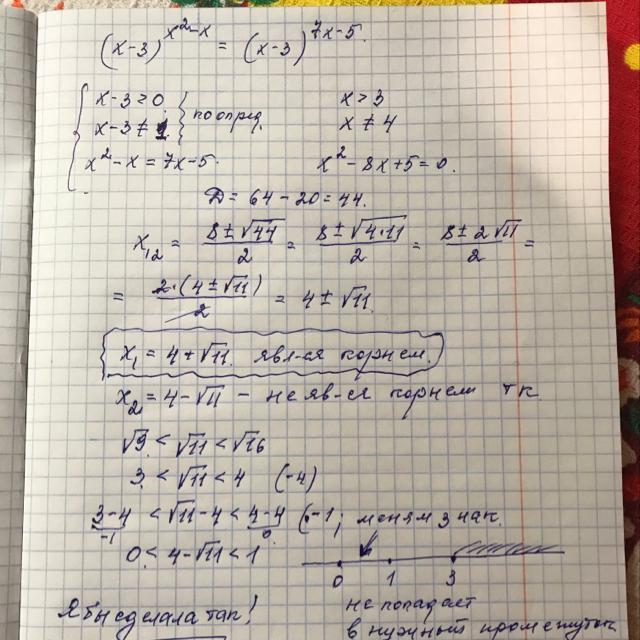 (x-3)^{x²-x} = (x-3)^{7x-5}.
{ x-3>0. } по опред. x>3
x-3≠1 x≠4
x²-x=7x-5. x²-8x+5=0.
D=64-20=44.
x₁,₂ = (8±√44)/2 = (8±√(4·11))/2 = (8±2√11)/2 =
= (2·(4±√11))/2 = 4±√11.
x₁=4+√11. явл-ся корнем.
x₂=4-√11 - не яв-ся корнем тк
√9 < √11 < √16
3 < √11 < 4 (-4)
3-4 < √11-4 < 4-4 (·-1; меням знак.
-1 0
0 < 4-√11 < 1
0 1 3
Я бы сделала так! не попадает
в нужный промежуток